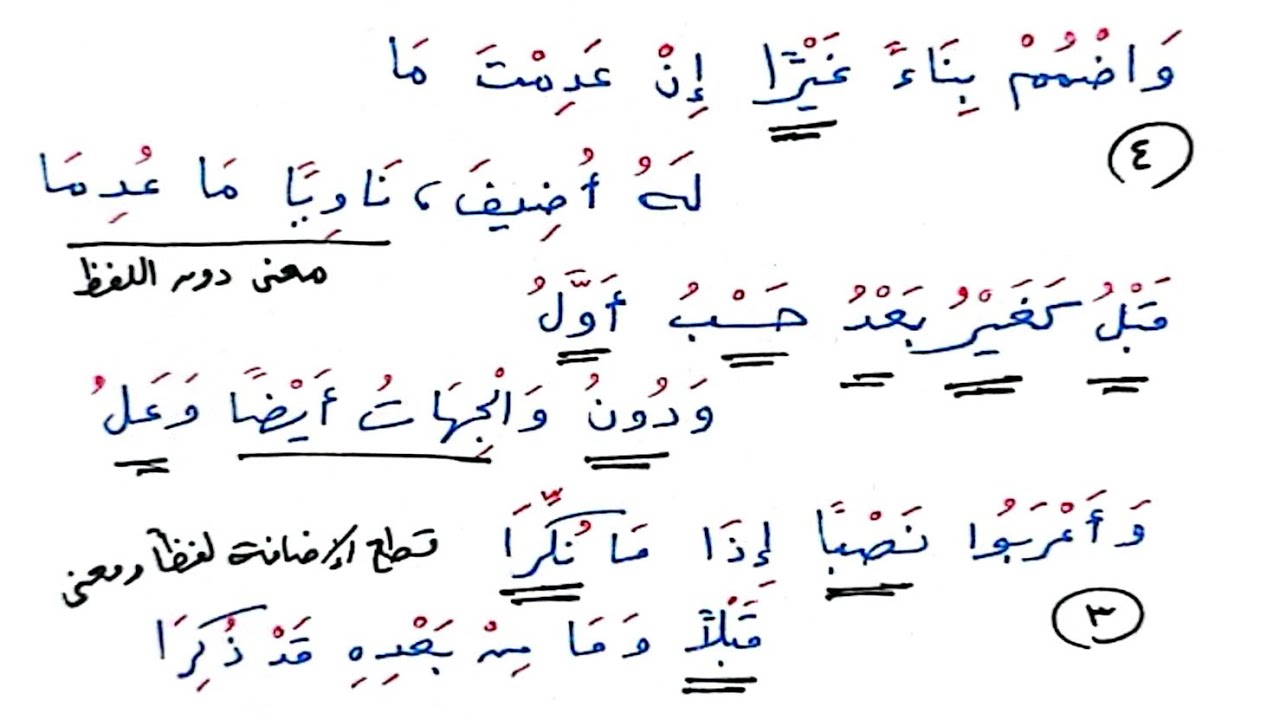 وَاضْمُمْ بِنَاءً غَيْرًا إِنْ عَدِمْتَ مَا
٤
لَهُ أُضِيفَ، نَاوِيًا مَا عُدِمَا
معنى دون اللفظ
قَبْلُ كَغَيْرُ بَعْدُ حَسْبُ أَوَّلُ
وَدُونُ وَالْجِهَاتُ أَيْضًا وَعَلُ
وَأَعْرَبُوا نَصْبًا إِذَا مَا نُكِّرَا
قطع الإضافة لفظاً ومعنى
٣
قَبْلًا وَمَا مِنْ بَعْدِهِ قَدْ ذُكِرَا